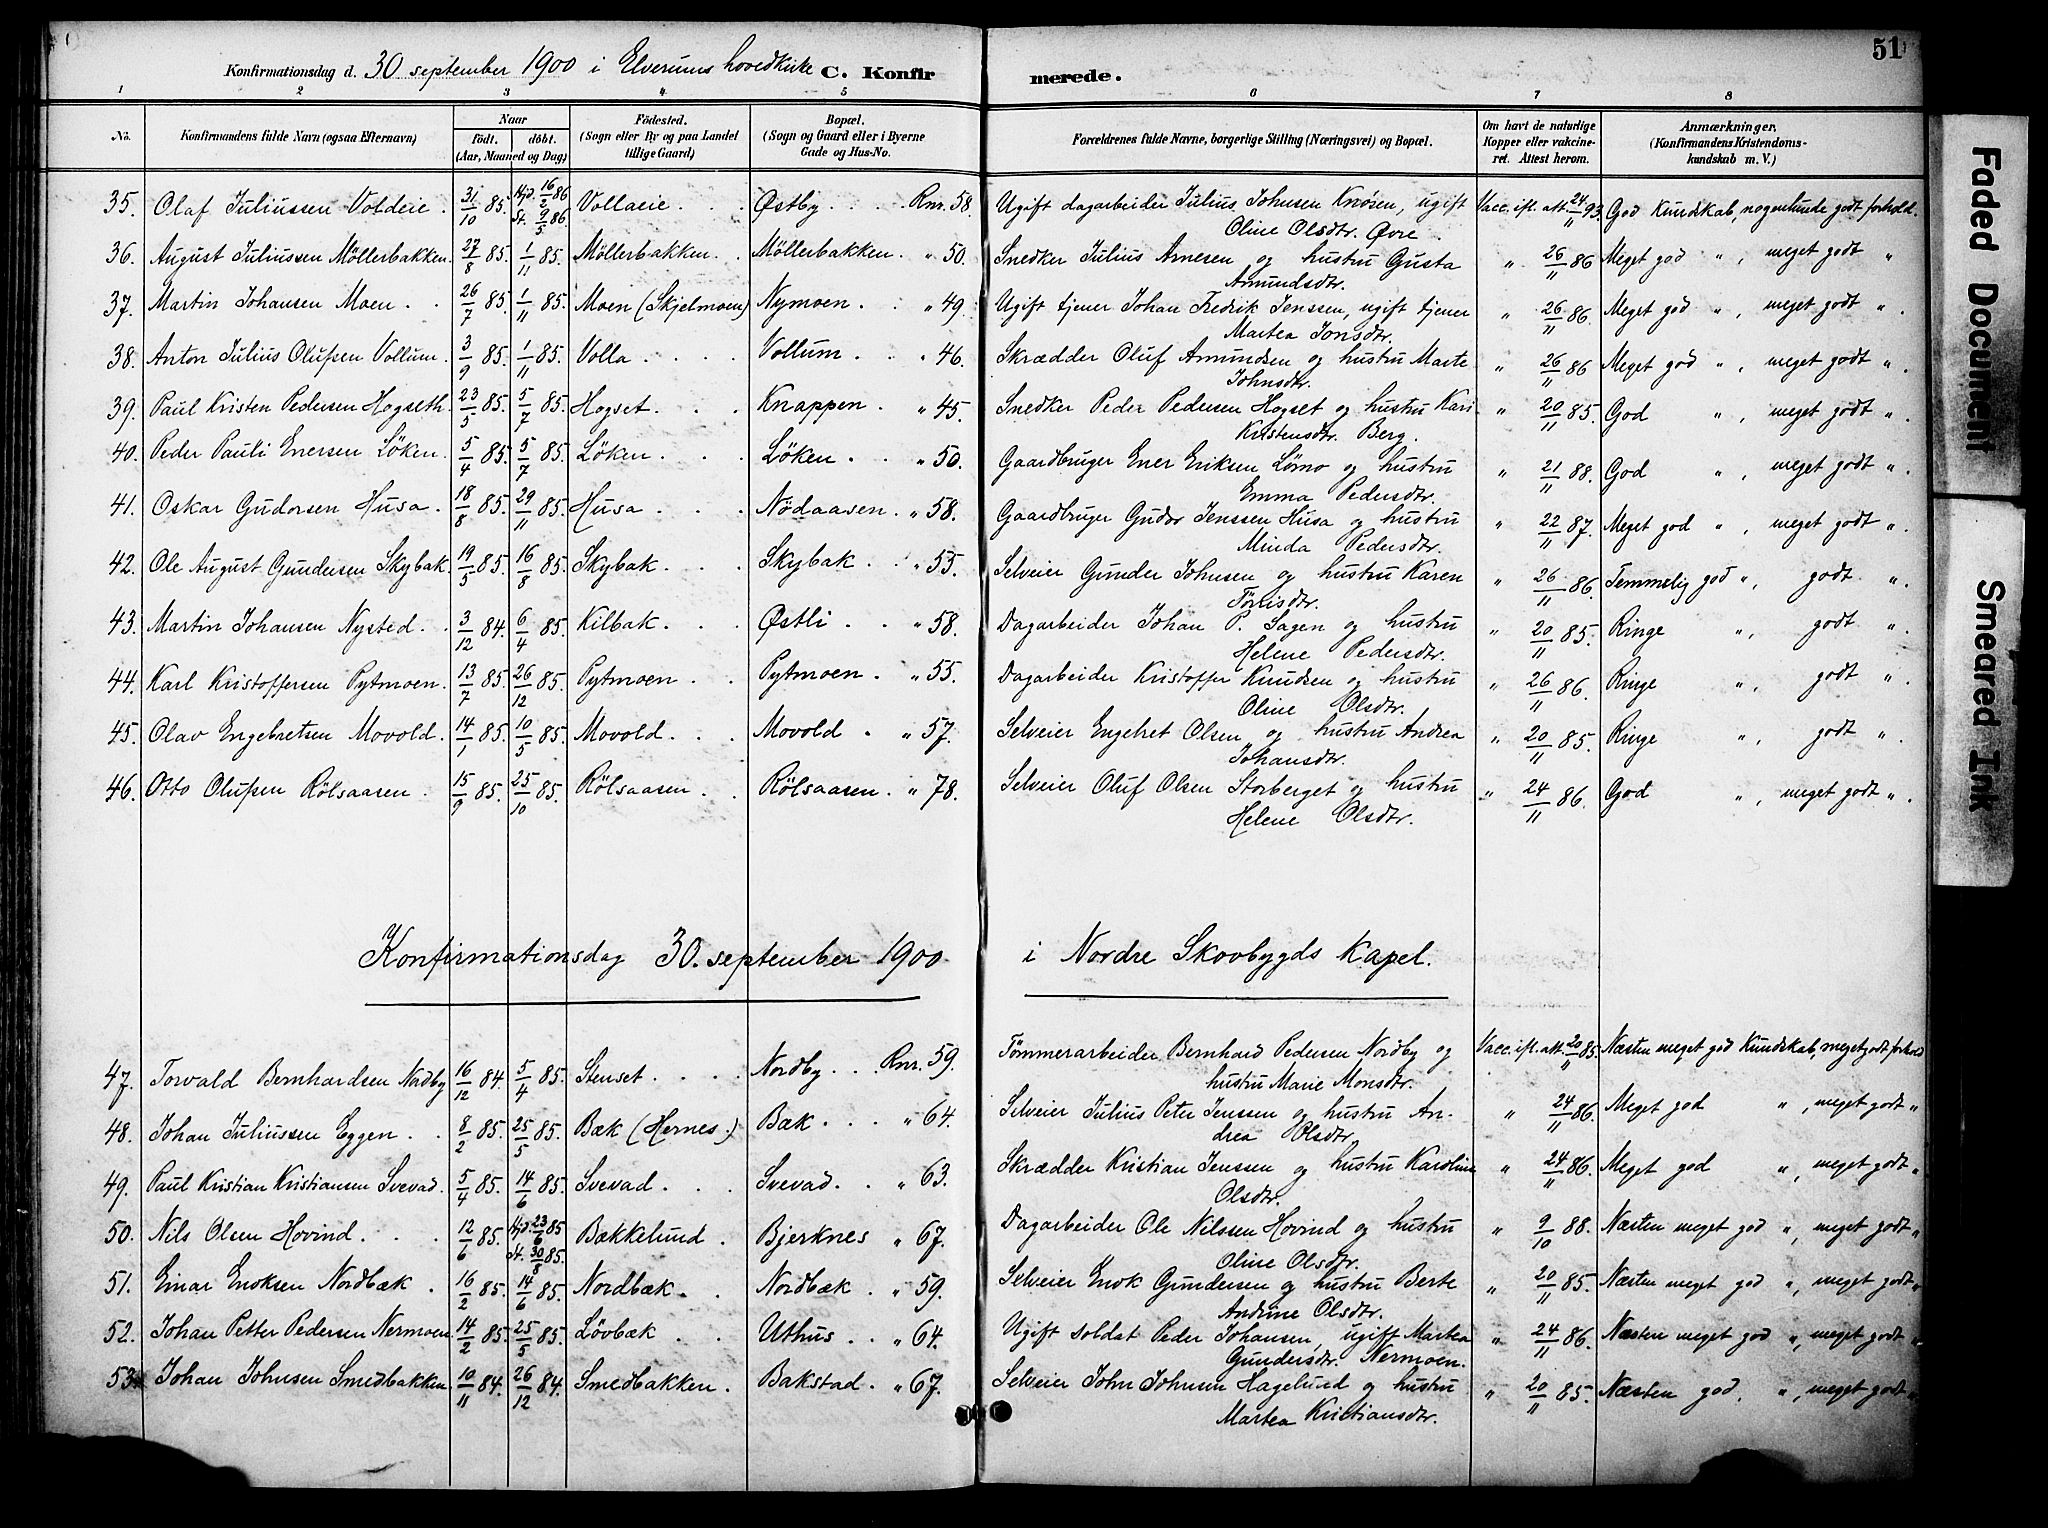 Konfirmationsdag d. 30 september 1900 i Elverums hovedkirke C. Konfirmerede. 51
1 2 3 4 5 6 7 8
No. Konfirmandens fulde Navn (ogsaa Efternavn) Naar födt. döbt. (Aar, Maaned og Dag) Födested. (Sogn eller By og paa Landet tillige Gaard) Bopæl. (Sogn og Gaard eller i Byerne Gade og Hus-No. Forældrenes fulde Navne, borgerlige Stilling (Næringsvei) og Bopæl. Om havt de naturlige Kopper eller vakcineret. Attest herom. Anmærkninger. (Konfirmandens Kristendomskundskab m. V.)
35. Olaf Juliussen Voldeie. 31/10 85. Hjd. 16/2 86 St. 9/5 86. Vollaeie . . . Østby . . . Rnr. 58. Ugift dagarbeider Julius Johnsen Knösen, ugift Vacc. ifl. att. 24/11 93. God Kundskab, nogenlunde godt forhold.
Oline Olsdtr. Øvre.
36. August Juliussen Möllerbakken. 27/8 85. 1/11 85. Möllerbakken. . Möllerbakken. " 50. Snedker Julius Arnesen og hustru Gusta " 26/11 86 Meget god " , meget godt "
Amundsdtr.
37. Martin Johansen Moen . . 26/7 85. 1/11 85. Moen (Skjelmoen) Nymoen . . " 49. Ugift tjener Johan Fredrik Jenssen, ugift tjener " 26/11 86. Meget god " , meget godt " .
Martea Jonsdtr.
38. Anton Julius Olufsen Vollum. 3/9 85. 1/11 85. Volla . . . . Vollum . . " 46. Skrædder Oluf Amundsen og hustru Marte " 26/11 86 Meget god " , meget godt " .
Johnsdtr.
39. Paul Kristen Pedersen Hogseth. 23/5 85. 5/7 85. Hogset. . . . Knappen . " 45. Snedker Peder Pedersen Hogset og hustru Kari " 20/11 85. God " , meget godt " .
Kristensdtr. Berg.
40. Peder Pauli Enersen Löken. 5/4 85. 5/7 85. Löken . . . Löken . . " 50. Gaardbruger Ener Eriksen Lömo og hustru " 21/11 88. God " , meget godt " .
Emma Pedersdtr.
41. Oskar Gudorsen Husa . 18/8 85. 29/11 85. Husa . . . Nödaasen . " 58. Gaardbruger Gudor Jenssen Husa og hustru " 22/11 87. Meget god " , meget godt " .
Minda Pedersdtr.
42. Ole August Gundersen Skybak. 19/5 85. 16/8 85. Skybak . . . Skybak . " 55. Selveier Gunder Johnsen og hustru Karen " 26/11 86. Temmelig god " , godt " .
Tönisdtr.
43. Martin Johansen Nysted . . 3/12 84. 6/4 85. Kilbak . . . Østli . . " 58. Dagarbeider Johan P. Sagen og hustru " 20/11 85. Ringe " , godt " .
Helene Pedersdtr.
44. Karl Kristoffersen Pytmoen. 13/7 85. 26/12 85. Pytmoen . . Pytmoen . " 55. Dagarbeider Kristoffer Knudsen og hustru " 26/11 86. Ringe " , godt " .
Oline Olsdtr.
45. Olav Engebretsen Movold. 14/1 85. 10/5 85. Movold . . . Movold . " 57. Selveier Engebret Olsen og hustru Andrea " 20/11 85. Ringe " , godt " .
Johansdtr.
46. Otto Olufsen Rölsaasen . 15/9 85. 25/10 85. Rölsaasen . . Rölsaasen . " 78. Selveier Oluf Olsen Storberget og hustru " 24/11 86. God " , meget godt " .
Helene Olsdtr.
Konfirmationsdag 30. september 1900 i Nordre Skovbygds Kapel.
47. Torvald Bernhardsen Nordby 16/12 84. 5/4 85. Stenset . . . . Nordby . . . Rnr. 59. Tömmerarbeider Bernhard Pedersen Nordby og Vacc. ifl. att. 20/11 85. Næsten meget god Kundskab, meget godt forhold
hustru Marie Monsdtr.
48. Johan Juliussen Eggen . . 8/2 85. 25/5 85. Bæk (Hernes.) Bæk . . . " 64. Selveier Julius Peter Jenssen og hustru An- " 24/11 86. Meget god " , meget godt "
drea Olsdtr.
49. Paul Kristian Kristiansen Svevad. 5/4 85. 14/6 85. Svevad . . . Svevad . . " 63. Skrædder Kristian Jenssen og hustru Karoline " 24/11 86. Meget god " , meget godt "
Olsdtr.
50. Nils Olsen Hovind . . . 12/6 85. Hjd. 23/6 85 St. 30/8 85. Bækkelund . Bjerknes " 67. Dagarbeider Ole Nilssen Hovind og hustru " 9/10 88. Næsten meget god " , meget godt "
Oline Olsdtr.
51. Einar Enoksen Nordbæk . 16/2 85. 14/6 85. Nordbæk . . Nordbæk . " 59. Selveier Enok Gundersen og hustru Berte " 20/11 85. Næsten meget god " , meget godt "
Andrine Olsdtr.
52. Johan Petter Pedersen Nermoen. 14/2 85. 25/5 85. Lövbæk . . Uthus . . " 64. Ugift soldat Peder Johansen, ugift Martea " 24/11 86. Næsten meget god " , meget godt "
Gundersdtr. Nermoen.
53. Johan Johnsen Smedbakken. 10/11 84. 26/12 84. Smedbakken. Bakstad . " 67. Selveier John Johnsen Hagelund og hustru " 20/11 85. Næsten god. " , meget godt "
Martea Kristiansdtr.
Faded Document
Smeared Ink